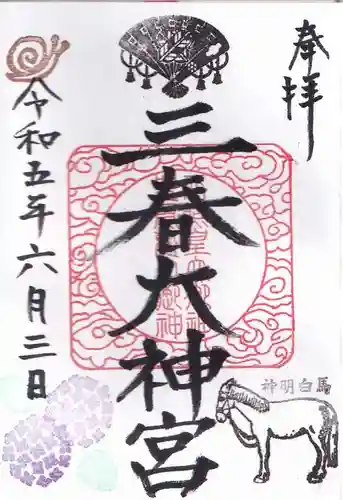 奉拝
三春大神宮
令和五年六月三日
馬白明神